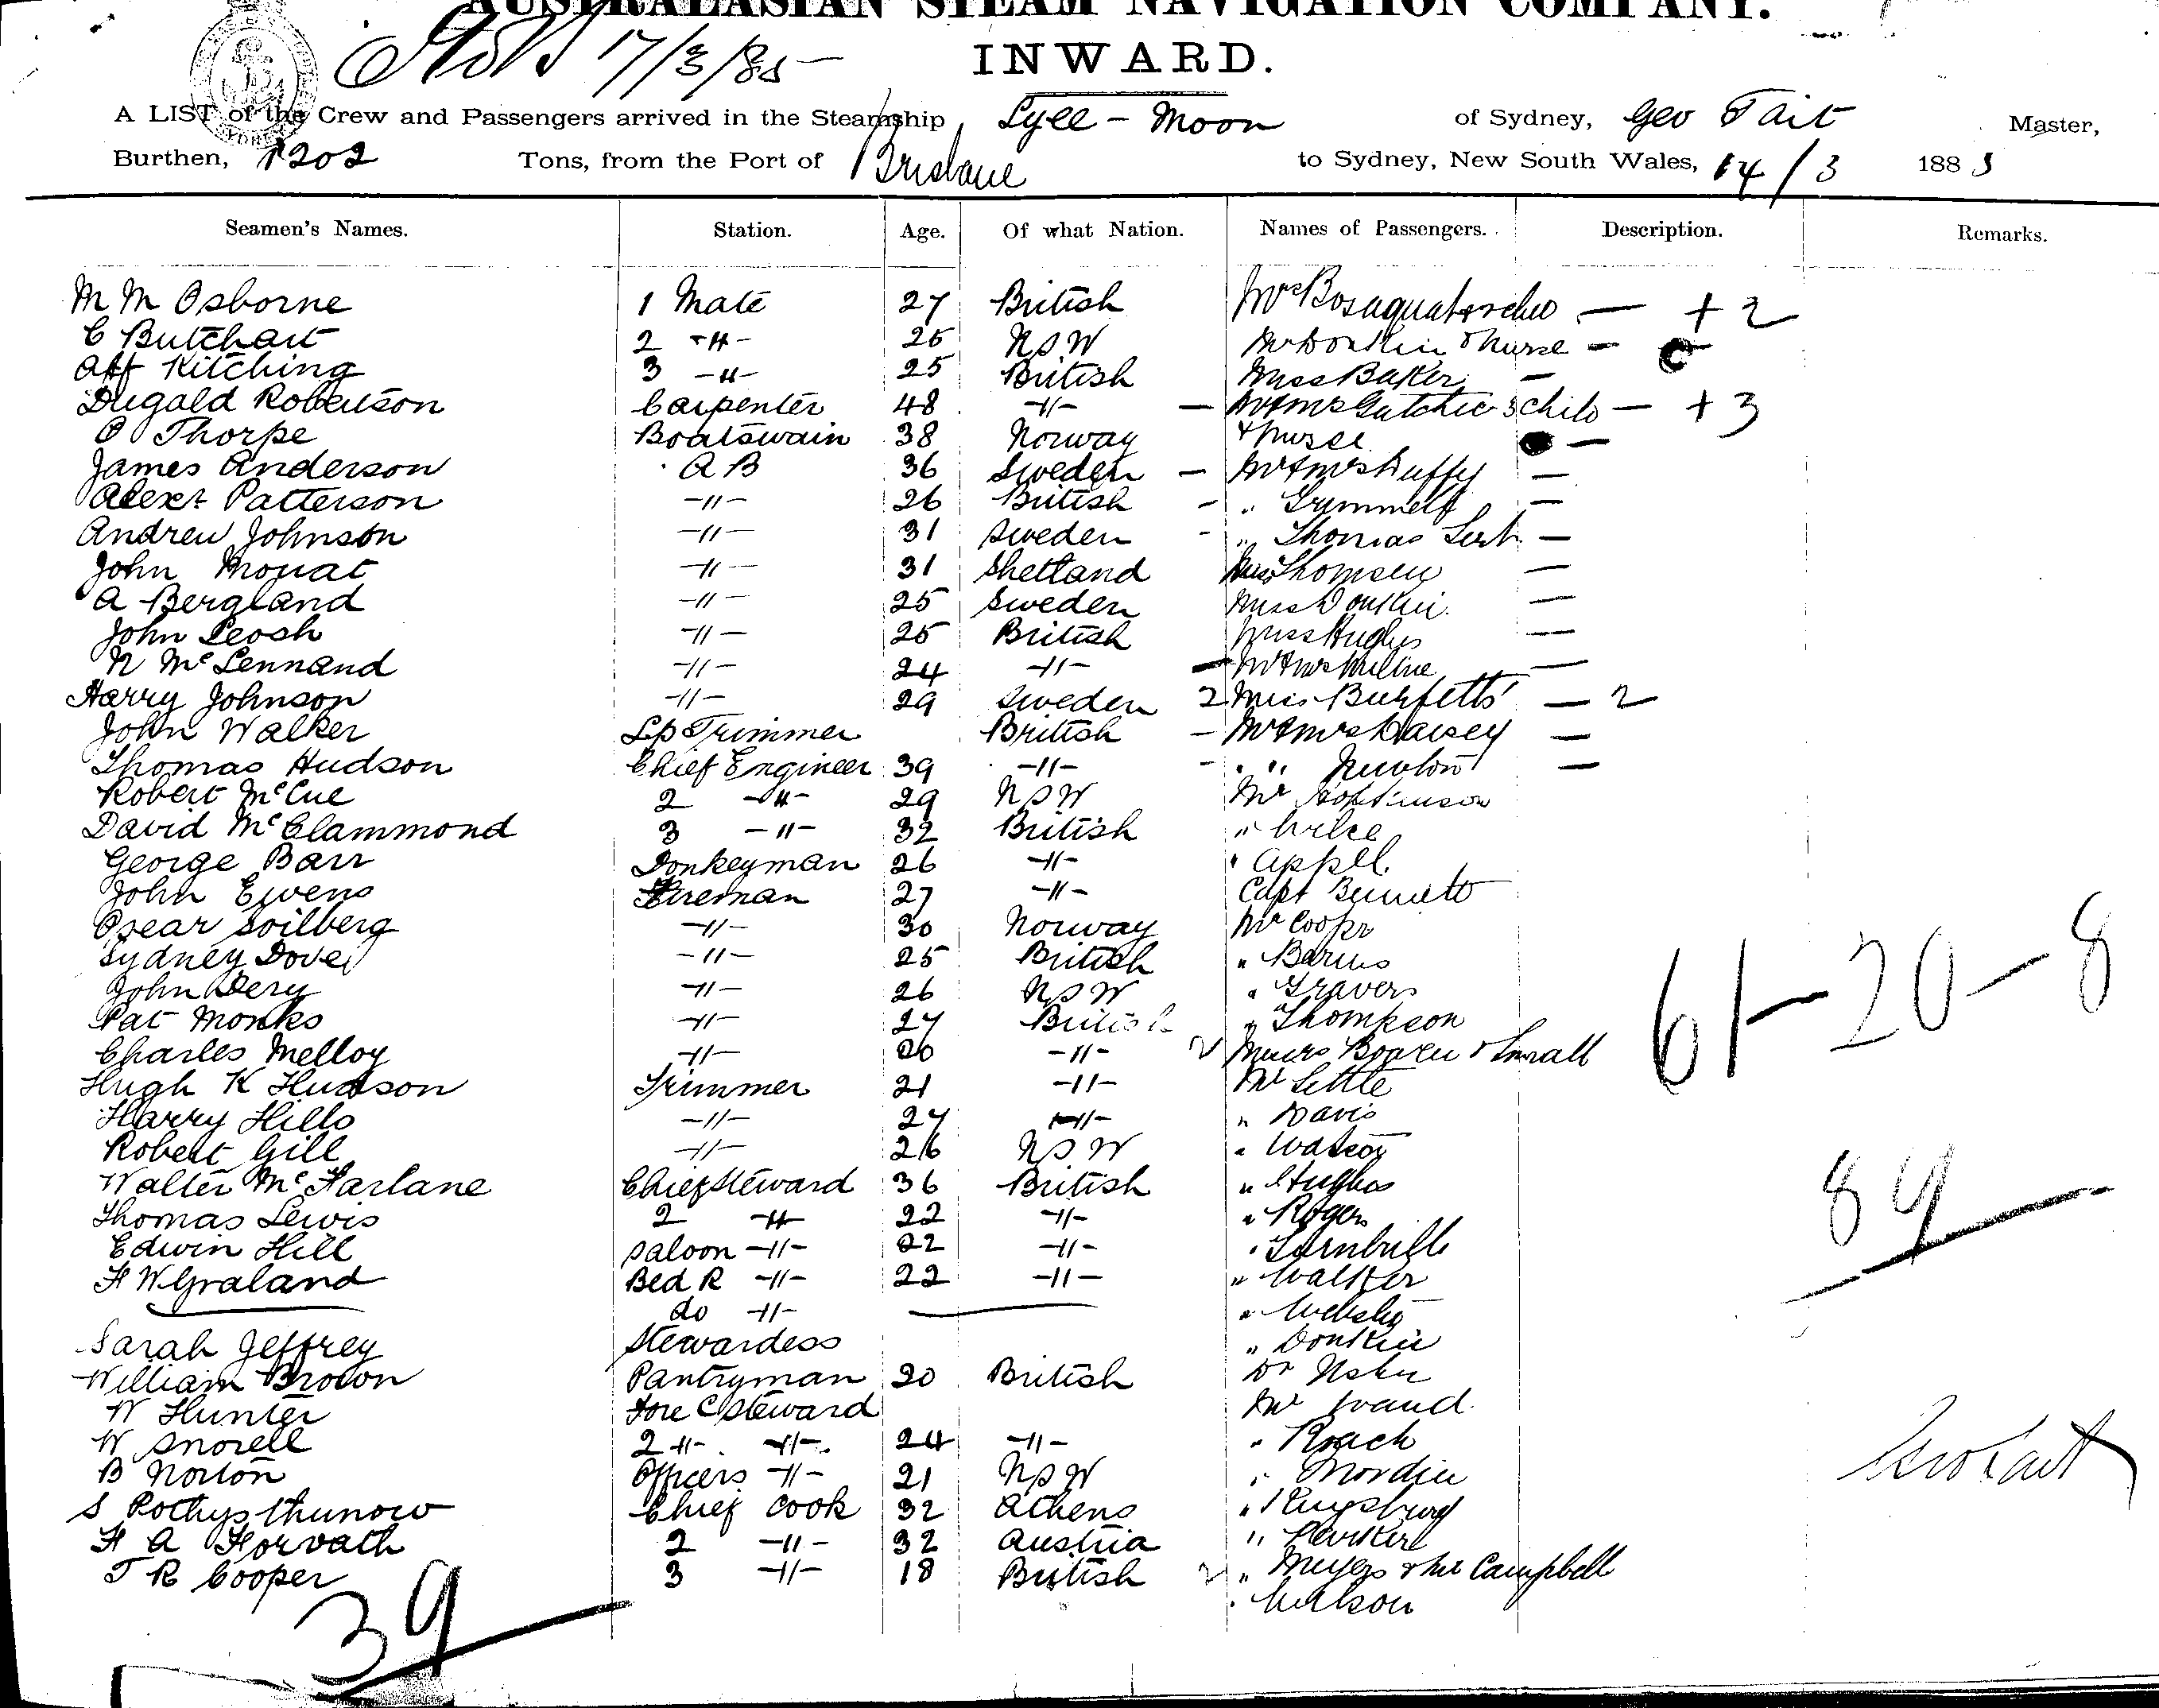 AUSTRALASIAN STEAM NAVIGATION COMPANY.
17/3/85
INWARD.
A LIST of the Crew and Passengers arrived in the Steamship Lyee-Moon of Sydney, Geo Tait Master,
Burthen, 1202 Tons, from the Port of Brisbane to Sydney, New South Wales, 14/3 1885
Seamen's Names. Station. Age. Of what Nation. Names of Passengers. Description. Remarks.
M M Osborne 1 Mate 27 British — + 2
C Butchart 2 -"- 25 NSW & Nurse —
Kitching 3 -"- 25 British Miss Baker —
Dugald Robertson Carpenter 48 -"- — Mr & Mrs Gutchie 3 child — + 3
O Thorpe Boatswain 38 Norway & Nurse —
James Anderson A B 36 Sweden — Mr & Mrs Duffy —
Alexr Patterson -"- 26 British - " —
Andrew Johnson -"- 31 Sweden - " Thomas —
John Mouat -"- 31 Shetland —
A Bergland -"- 25 Sweden Miss Donkin —
John Leosh -"- 25 British Miss Hughes —
N McLennand -"- 24 -"- — Mr & Mrs —
Harry Johnson -"- 29 Sweden 2 Miss Burfetts — 2
John Walker Lp Trimmer British — Mr & Mrs —
Thomas Hudson Chief Engineer 39 -"- - " " Newton —
Robert McCue 2 -"- 29 NSW Mr
David McClammond 3 -"- 32 British "
George Barr Donkeyman 26 -"- " Appel.
John Ewens Fireman 27 -"- Capt Bennett
Oscar Soilberg -"- 30 Norway Mr Cooper
Sydney Dove -"- 25 British " Barnes
John Dery -"- 26 NSW " Travers
Pat Monks -"- 27 British " Thompson
Charles Melloy -"- 20 -"- 2 & Small
Hugh K Hudson Trimmer 21 -"- Mr Little
Harry Hills -"- 27 -"- " Davis
Robert Gill -"- 26 NSW " Watson
Walter McFarlane Chief Steward 36 British " Hughes
Thomas Lewis 2 -"- 22 -"- " Rogers
Edwin Hill Saloon -"- 22 -"- " Turnbull
F W Graland Bed R -"- 22 -"- " Walker
do -"- " Webster
Sarah Jeffrey Stewardess " Donkin
William Brown Pantryman 20 British Dr
W Hunter Fore C Steward Mr
W Snorell 2 -"- -"- 24 -"- " Roach
B Norton Officers -"- 21 NSW "
S Rothysthunow Chief Cook 32 Athens " Kingsbury
F A Horvath 2 -"- 32 Austria " Parker
T R Cooper 3 -"- 18 British 2 " Meyers & Mr Campbell
" Wilson
61-20-8
89
Geo Tait
39